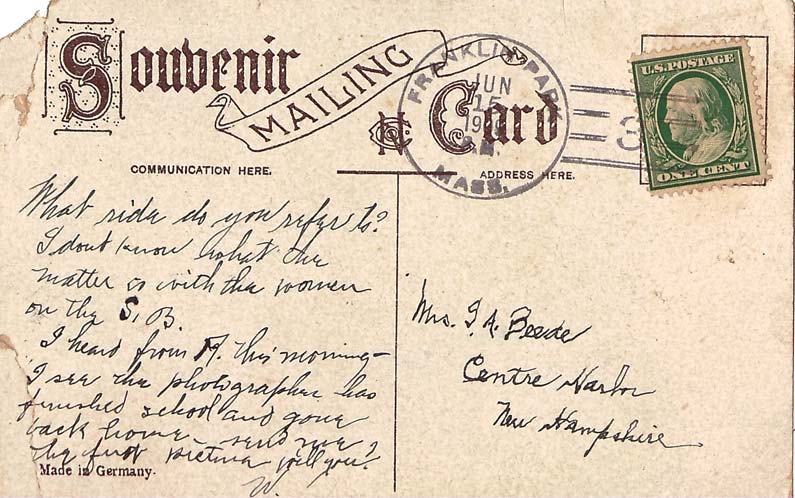 Souvenir
MAILING
Card
COMMUNICATION HERE.
ADDRESS HERE.
FRANKLIN PARK
JUN
15
MASS.
3
U.S. POSTAGE
ONE CENT
What ride do you refer to?
I dont know what the
matter is with the women
on the S. B.
I heard from M. this morning—
I see the photographer has
finished school and gone
back home — send me
the first picture will you?
W.
Made in Germany.
Mrs. I. A. Beede
Centre Harbor
New Hampshire